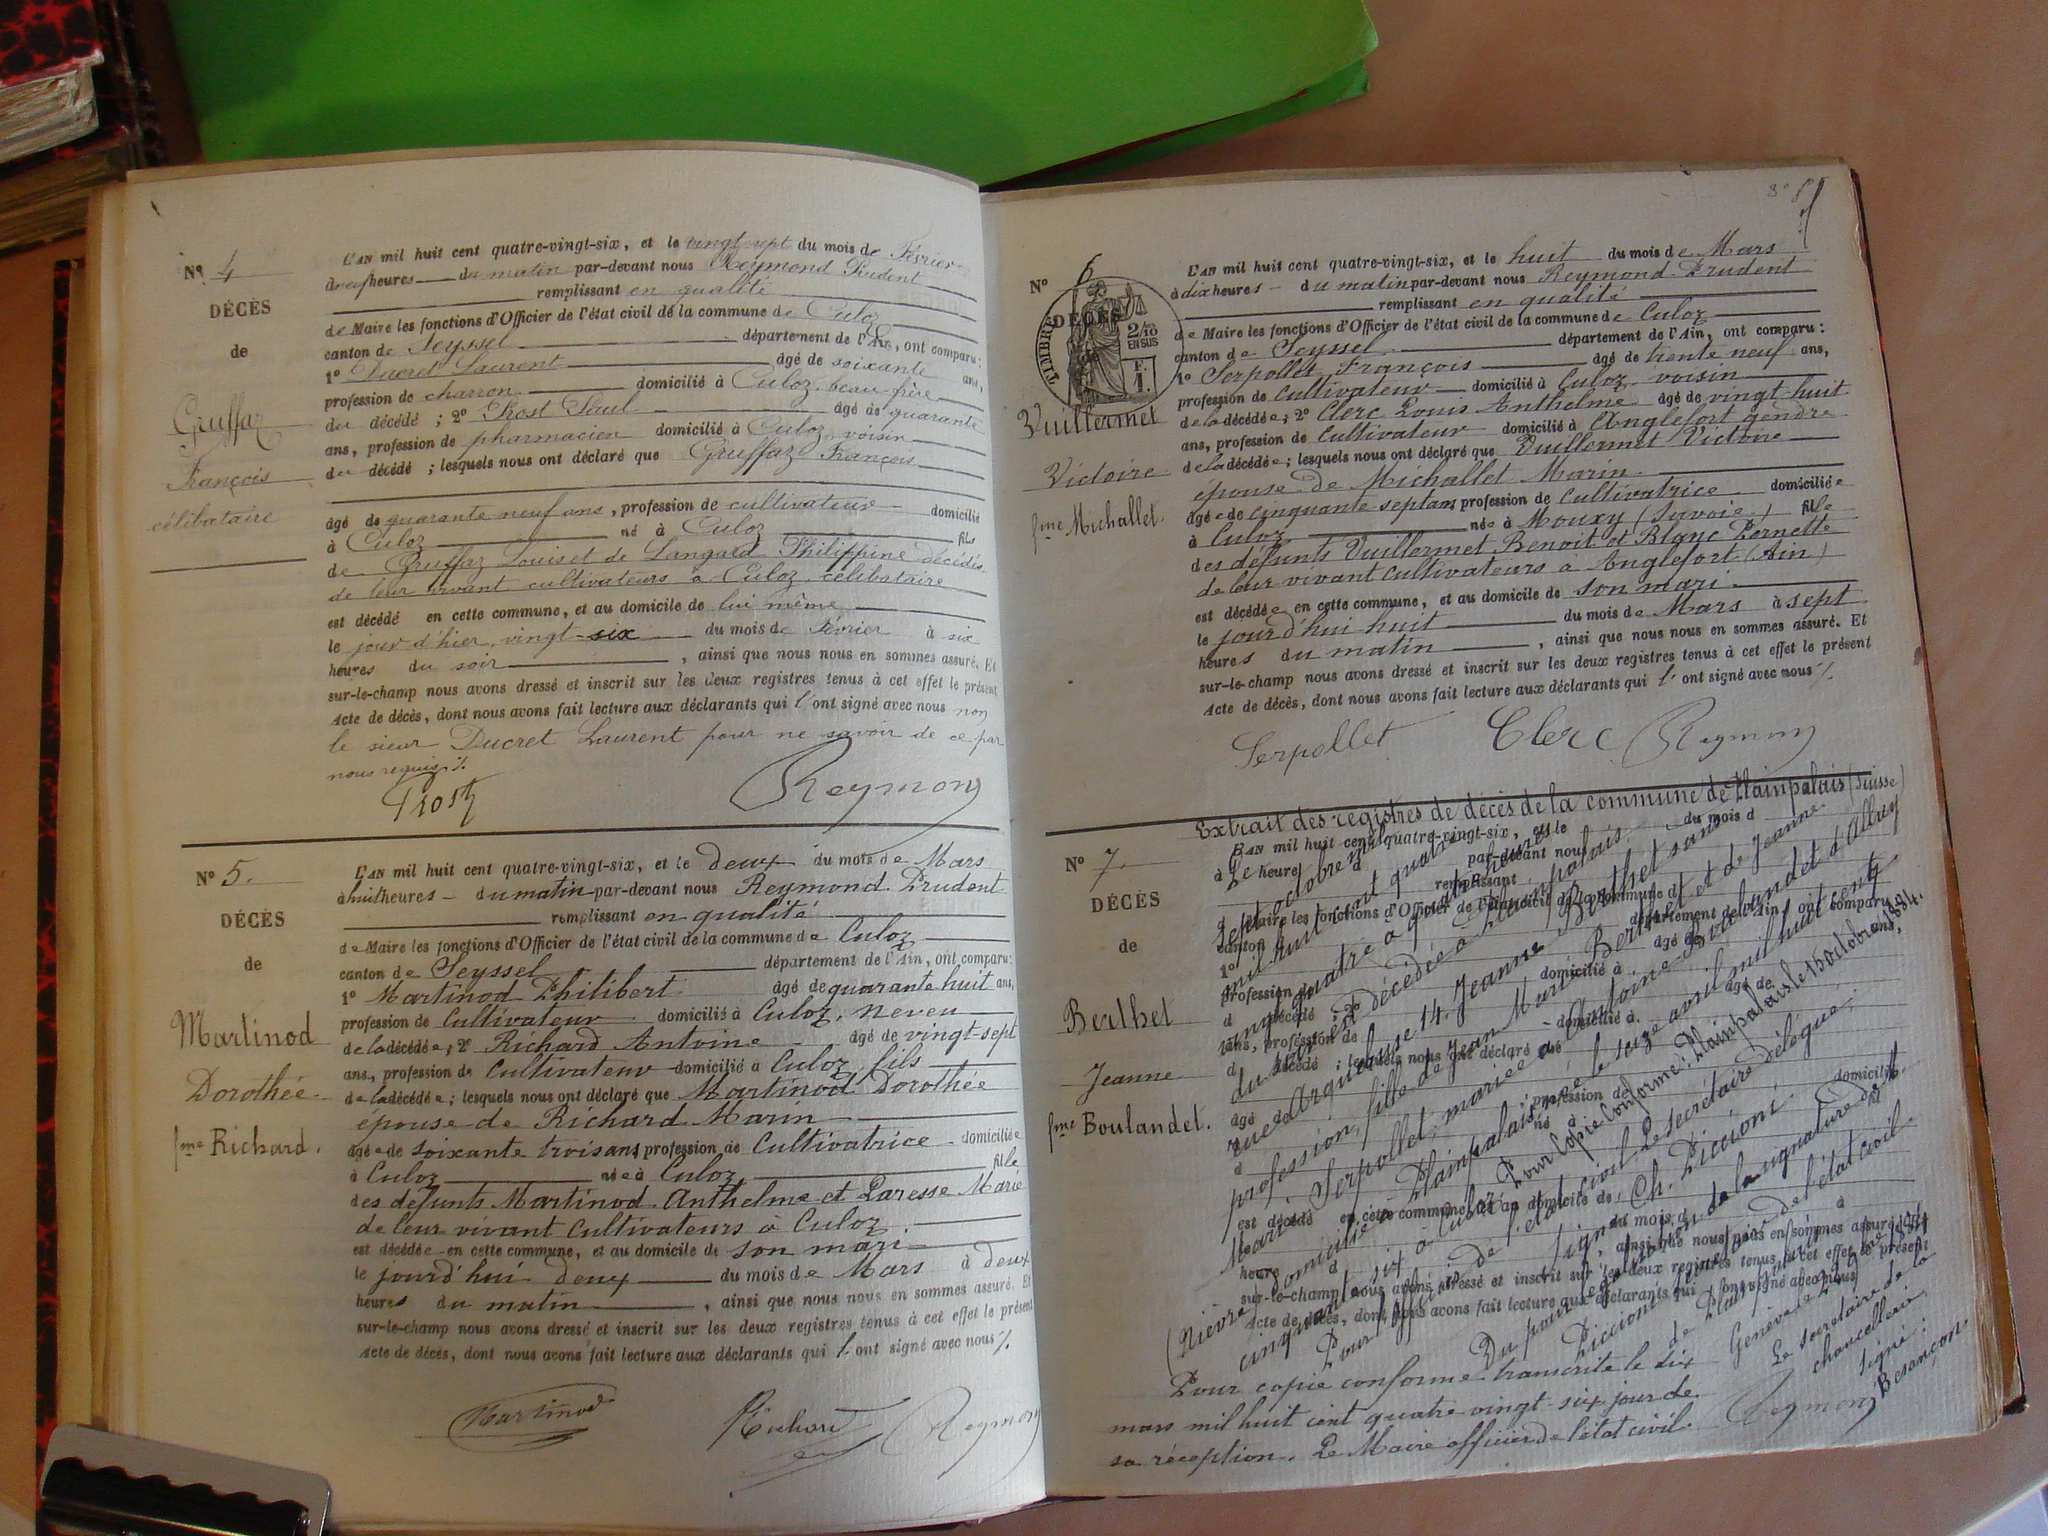 Nº 4
DÉCÈS
de
Gruffaz
François
célibataire
L'AN mil huit cent quatre-vingt-six, et le vingt sept du mois de Février
à neuf heures du matin par-devant nous Reymond Prudent
remplissant en qualité
de Maire les fonctions d'Officier de l'état civil de la commune de Culoz
canton de Seyssel département de l'Ain, ont comparu:
1º Ducret Laurent âgé de soixante ans,
profession de charron domicilié à Culoz, beau-frère
du décédé ; 2º Prost Paul âgé de quarante
ans, profession de pharmacien domicilié à Culoz, voisin
du décédé ; lesquels nous ont déclaré que Gruffaz François
âgé de quarante neuf ans, profession de cultivateur domicilié
à Culoz né à Culoz fils
de Gruffaz Louis et de Langard Philippine décédés
de leur vivant cultivateurs à Culoz, célibataire
est décédé en cette commune, et au domicile de lui même
le jour d'hier, vingt-six du mois de Février à six
heures du soir, ainsi que nous nous en sommes assuré. Et
sur-le-champ nous avons dressé et inscrit sur les deux registres tenus à cet effet le présent
Acte de décès, dont nous avons fait lecture aux déclarants qui l'ont signé avec nous non
le sieur Ducret Laurent pour ne savoir de ce par
nous requis ./.
Prost Reymond
Nº 5.
DÉCÈS
de
Martinod
Dorothée
fme Richard.
L'AN mil huit cent quatre-vingt-six, et le deux du mois de Mars
à huit heures du matin par-devant nous Reymond Prudent
remplissant en qualité
de Maire les fonctions d'Officier de l'état civil de la commune de Culoz
canton de Seyssel département de l'Ain, ont comparu:
1º Martinod Philibert âgé de quarante huit ans,
profession de Cultivateur domicilié à Culoz, neveu
de la décédée ; 2º Richard Antoine âgé de vingt-sept
ans, profession de Cultivateur domicilié à Culoz, fils
de la décédée ; lesquels nous ont déclaré que Martinod Dorothée
épouse de Richard Marin
âgée de soixante trois ans profession de Cultivatrice domiciliée
à Culoz née à Culoz fille
des défunts Martinod Anthelme et Paresse Marie
de leur vivant Cultivateurs à Culoz.
est décédée en cette commune, et au domicile de son mari
le jourd'hui deux du mois de Mars à deux
heures du matin, ainsi que nous nous en sommes assuré. Et
sur-le-champ nous avons dressé et inscrit sur les deux registres tenus à cet effet le présent
Acte de décès, dont nous avons fait lecture aux déclarants qui l'ont signé avec nous ./.
Martinod Richard Reymond
Nº 6
DÉCÈS
TIMBRE
2/10
EN SUS
F.
1.
Vuillermet
Victoire
fme Michallet.
L'AN mil huit cent quatre-vingt-six, et le huit du mois de Mars
à dix heures du matin par-devant nous Reymond Prudent
remplissant en qualité
de Maire les fonctions d'Officier de l'état civil de la commune de Culoz
canton de Seyssel département de l'Ain, ont comparu:
1º Serpollet François âgé de trente neuf ans,
profession de cultivateur domicilié à Culoz, voisin
de la décédée ; 2º Clerc Louis Anthelme âgé de vingt-huit
ans, profession de Cultivateur domicilié à Anglefort gendre
de la décédée ; lesquels nous ont déclaré que Vuillermet Victoire
épouse de Michallet Marin
âgée de cinquante sept ans, profession de Cultivatrice domiciliée
à Culoz née à Mouxy (Savoie) fille
des défunts Vuillermet Benoit et Blanc Pernette
de leur vivant Cultivateurs à Anglefort (Ain)
est décédée en cette commune, et au domicile de son mari
le jourd'hui huit du mois de Mars à sept
heures du matin, ainsi que nous nous en sommes assuré. Et
sur-le-champ nous avons dressé et inscrit sur les deux registres tenus à cet effet le présent
Acte de décès, dont nous avons fait lecture aux déclarants qui l'ont signé avec nous ./.
Serpollet Clerc Reymond
Extrait des registres de décès de la commune de Plainpalais (Suisse)
Nº 7.
DÉCÈS
de
Berthet
Jeanne
fme Boulandet.
L'AN mil huit cent quatre-vingt-six, et le du mois d
à heures d par-devant nous
remplissant
d Maire les fonctions d'Officier de l'état civil de la commune d
canton d département de l'Ain, ont comparu
Le sept octobre mil huit cent quatre
vingt quatre à quatre heures
est décédée à Plainpalais,
rue des Arquebuse 14, Jeanne Berthet sans
profession, fille de Jean Marie Berthet et de Jeanne
Marie Serpollet, mariée à Antoine Boulandet d'Alluy
(Nièvre) domiciliée à Plainpalais, née le seize avril mil huit cent
cinquante six à Culoz. Pour copie conforme: Plainpalais le 13 octobre 1884.
Pour l'officier de l'état civil Le secrétaire délégué:
signé Ch. Piccioni.
de la signature de M
Piccioni de l'état civil
de Plainpalais
Genève
Le secrétaire de la
chancellerie
signé:
Besançon.
Pour copie conforme transcrite le six
mars mil huit cent quatre vingt-six jour de
sa réception. Le Maire officier de l'état civil.
Reymond